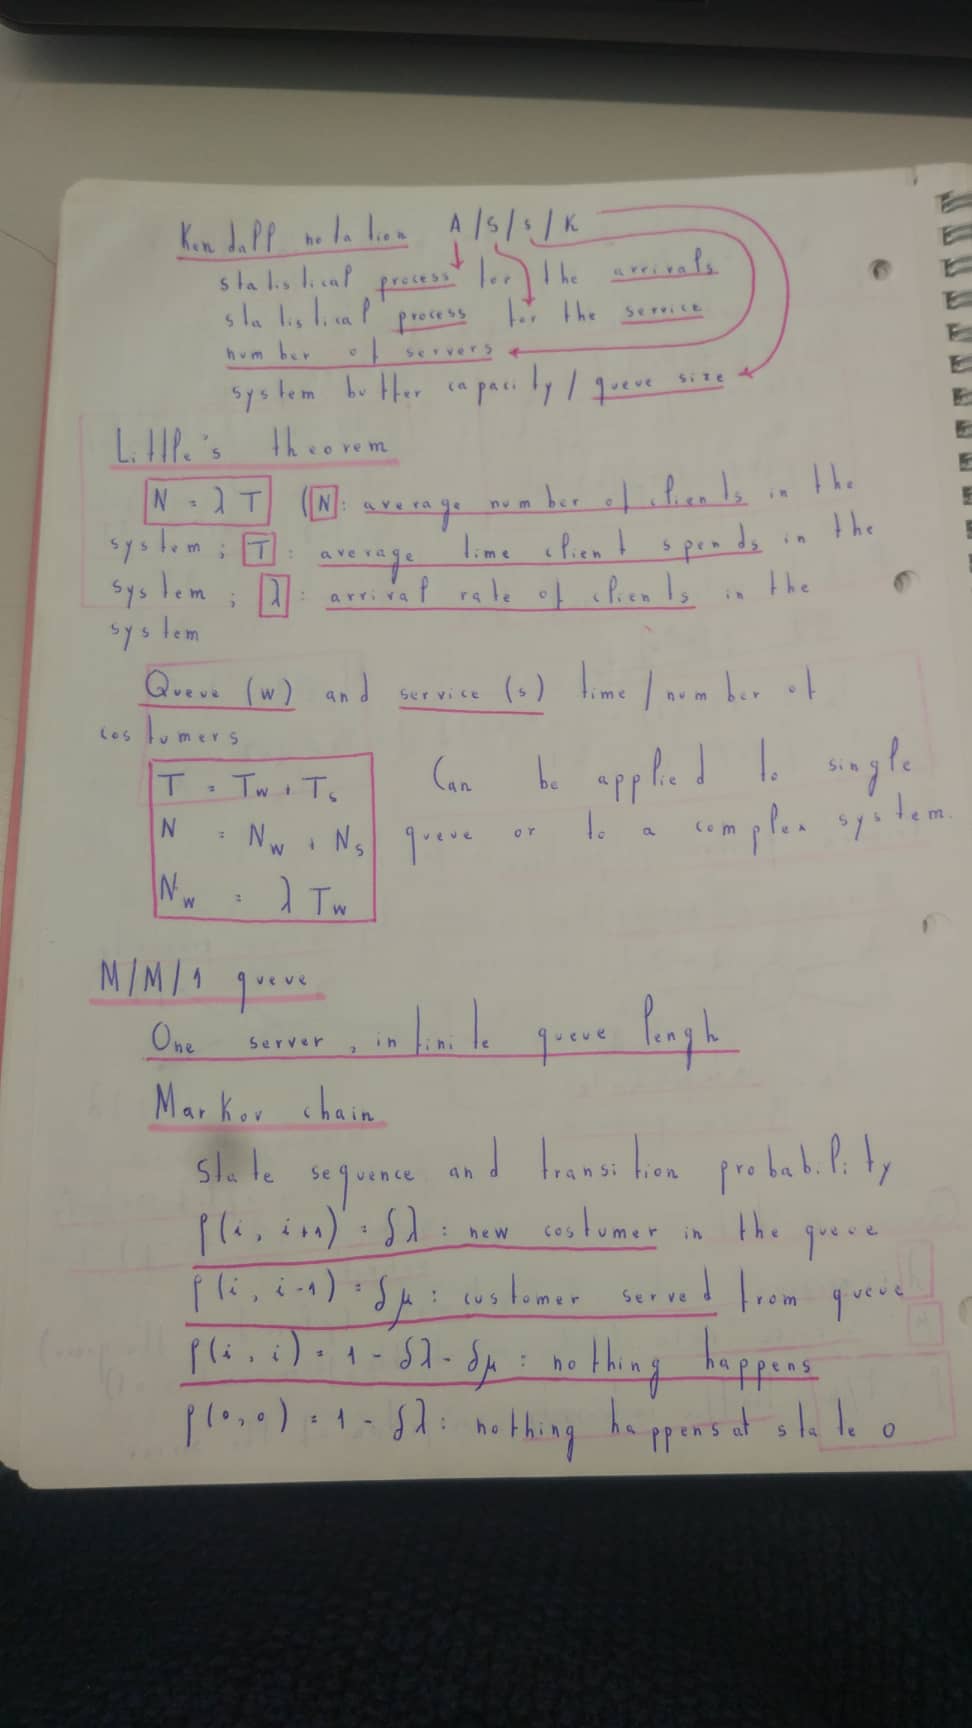 Kendall notation A/S/s/K
statistical process for the arrivals
statistical process for the service
number of servers
system buffer capacity / queue size
Little's theorem
N = λ T (N: average number of clients in the
system; T: average time client spends in the
system; λ: arrival rate of clients in the
system
Queue (w) and service (s) time / number of
costumers
T = Tw + Ts
N = Nw + Ns
Nw = λ Tw
Can be applied to single
queue or to a complex system.
M/M/1 queue
One server, infinite queue lengh
Markov chain
State sequence and transition probability
P(i, i+1) = δλ: new costumer in the queue
P(i, i-1) = δμ: customer served from queue
P(i, i) = 1 - δλ - δμ: nothing happens
P(0,0) = 1 - δλ: nothing happens at state 0